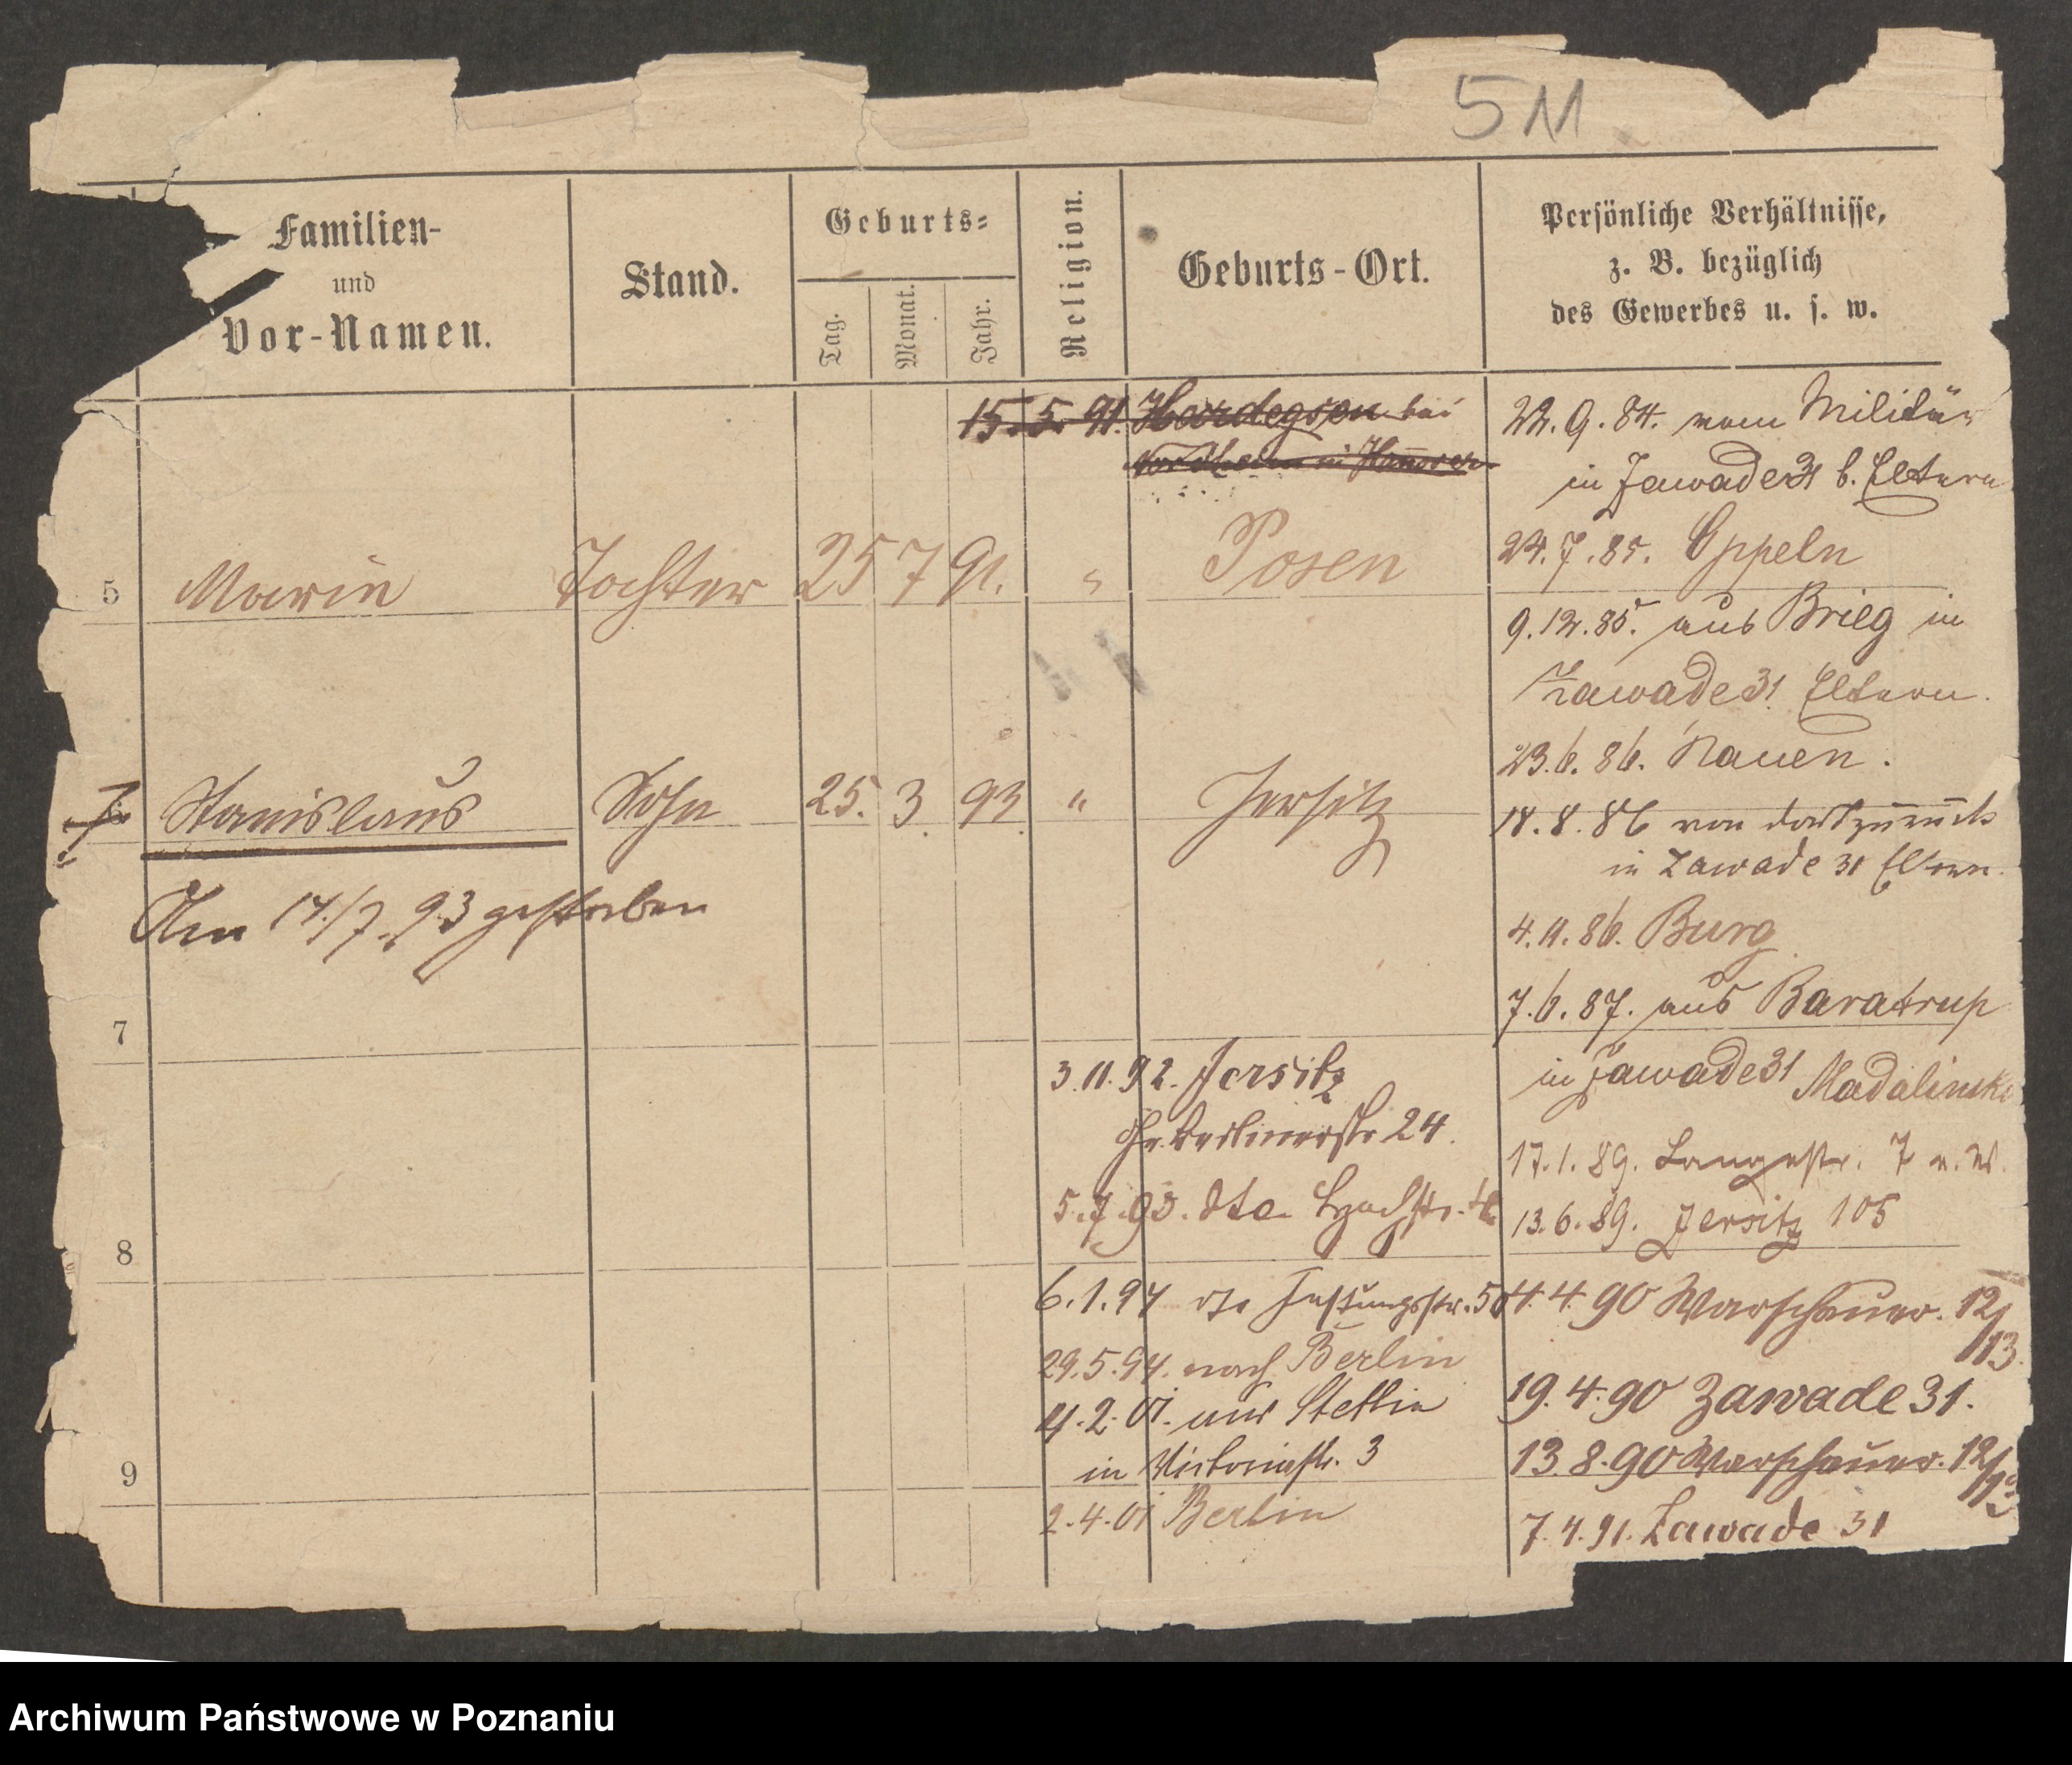 5 M
Familien-
und
Vor-Namen.
Stand.
Geburts-
Tag.
Monat.
Jahr.
Religion.
Geburts-Ort.
Persönliche Verhältnisse,
z. B. bezüglich
des Gewerbes u. s. w.
15. 5. 91. Hardegsen bei
Nordheim in Hannover
5 Marie Tochter 25 7 91. " Posen
6 Stanislaus Sohn 25. 3. 93. " Jersitz
Am 14/7. 93 gestorben
7
8
9
3.11.92. Jersitz
Gr. Berlinerstr 24.
5.7.93. dto
6.1.94 dto Festungsstr.
29.5.94. nach Berlin
4.2.01. aus Stettin
in Victoriastr. 3
2.4.01 Berlin
22.9.84. vom Militär
in Zawade 31 b. Eltern
24.7.85. Oppeln
9.12.85. aus Brieg in
Zawade 31 Eltern.
23.6.86. Nauen.
18.8.86 von dort zurück
in Zawade 31 Eltern.
4.11.86. Burg
7.6.87. aus Baratrup
in Zawade 31 Madalinski
17.1.89. Langestr. 7
13.6.89. Jersitz 105
4.4.90 Warschauer. 12/13.
19.4.90 Zawade 31.
13.8.90 Warschauer. 12/13
7.4.91. Zawade 31
Archiwum Państwowe w Poznaniu